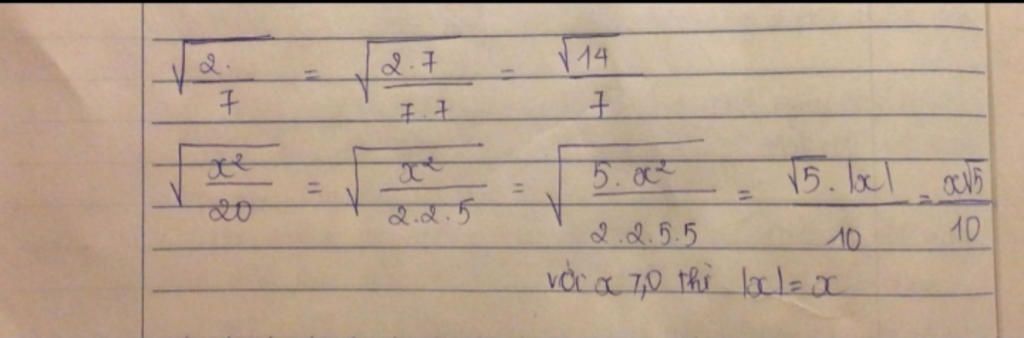 √(2/7) = √(2.7/7.7) = √14/7
√(x²/20) = √(x²/2.2.5) = √(5.x²/2.2.5.5) = √5.|x|/10 = x√5/10
với x ⩾ 0 thì |x| = x